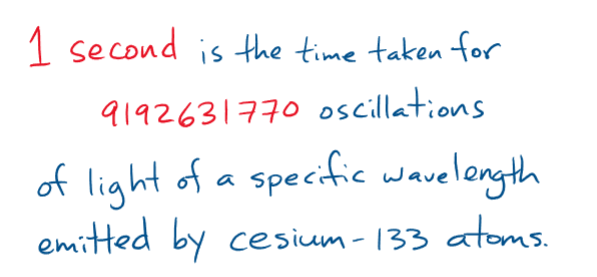 1 second is the time taken for
9192631770 oscillations
of light of a specific wavelength
emitted by cesium-133 atoms.